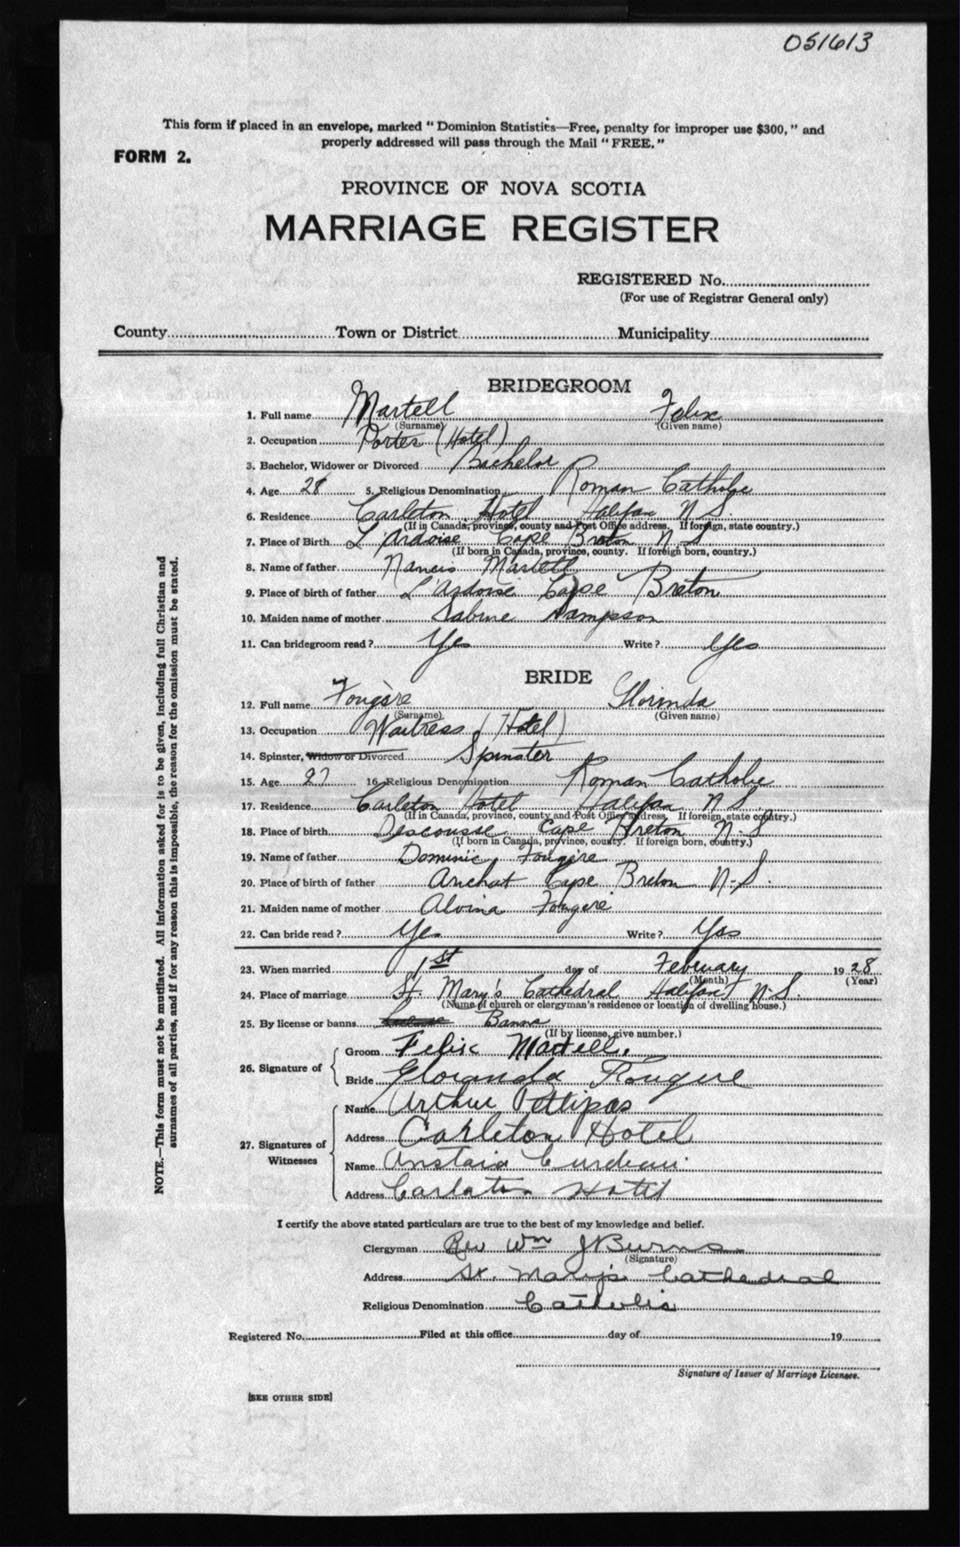 051613
This form if placed in an envelope, marked "Dominion Statistics—Free, penalty for improper use $300," and
properly addressed will pass through the Mail "FREE."
FORM 2.
PROVINCE OF NOVA SCOTIA
MARRIAGE REGISTER
REGISTERED No.
(For use of Registrar General only)
County Town or District Municipality
BRIDEGROOM
1. Full name Martell Felix
(Surname) (Given name)
2. Occupation Porter (Hotel)
3. Bachelor, Widower or Divorced Bachelor
4. Age 28 5. Religious Denomination Roman Catholic
6. Residence Carleton Hotel Halifax N.S.
(If in Canada, province, county and Post Office address. If foreign, state country.)
7. Place of Birth L'Ardoise Cape Breton N.S
(If born in Canada, province, county. If foreign born, country.)
8. Name of father Martell
9. Place of birth of father L'Ardoise Cape Breton
10. Maiden name of mother Sabine Sampson
11. Can bridegroom read? Yes Write? Yes
BRIDE
12. Full name Fougère Florinda
(Surname) (Given name)
13. Occupation Waitress (Hotel)
14. Spinster, Widow or Divorced Spinster
15. Age 27 16. Religious Denomination Roman Catholic
17. Residence Carleton Hotel Halifax N.S.
(If in Canada, province, county and Post Office address. If foreign, state country.)
18. Place of birth Descousse Cape Breton N.S
(If born in Canada, province, county. If foreign born, country.)
19. Name of father Dominic Fougère
20. Place of birth of father Arichat Cape Breton N.S.
21. Maiden name of mother Alvina Fougère
22. Can bride read? Yes Write? Yes
23. When married 1st day of February 1928
(Month) (Year)
24. Place of marriage St Mary's Cathedral Halifax N.S.
(Name of church or clergyman's residence or location of dwelling house.)
25. By license or banns Banns
(If by license, give number.)
26. Signature of
Groom Felix Martell.
Bride Fougere
27. Signatures of
Witnesses
Name Arthur Pettipas
Address Carleton Hotel
Name
Address Carleton Hotel
I certify the above stated particulars are true to the best of my knowledge and belief.
Clergyman Rev Wm J Burns
(Signature)
Address St. Mary's Cathedral
Religious Denomination Catholic
Registered No. Filed at this office day of 19
Signature of Issuer of Marriage Licenses.
[SEE OTHER SIDE]
NOTE.—This form must not be mutilated. All information asked for is to be given, including full Christian and
surnames of all parties, and if for any reason this is impossible, the reason for the omission must be stated.